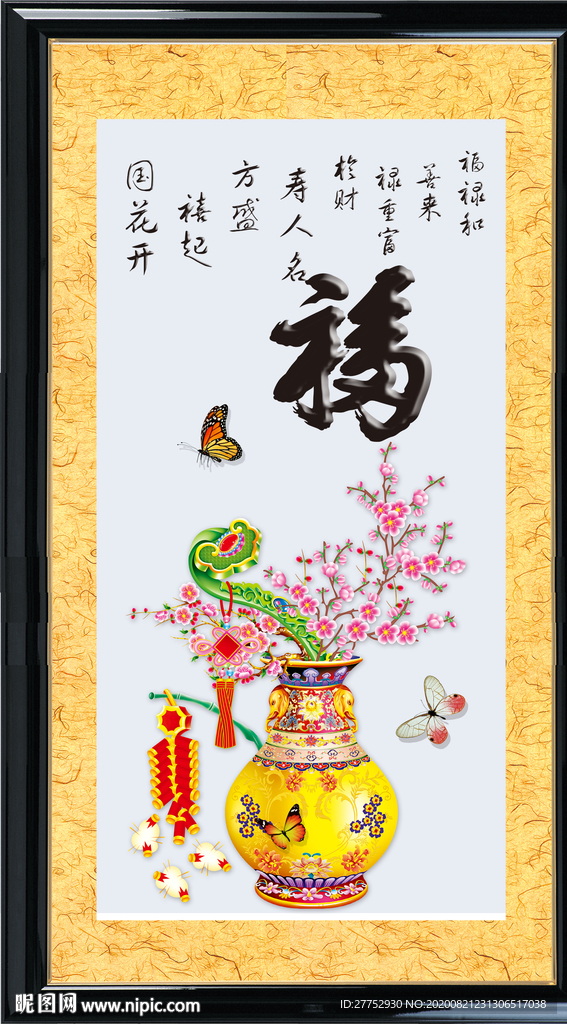 福禄和
善来
禄重富
於财
寿人名
方盛
禧起
国花开
福
昵图网 www.nipic.com
ID:27752930 NO:20200821231306517038